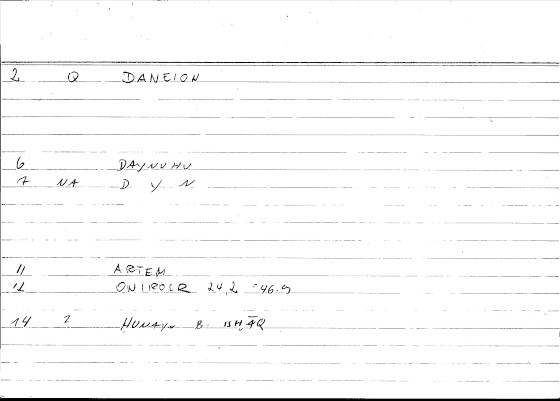 2 Q DANEION
6 DAYNUHU
7 NA D Y N
11 ARTEM
12 ONIROCR 24,2 -46.9
14 2 HUNAYN B. ISḤĀQ